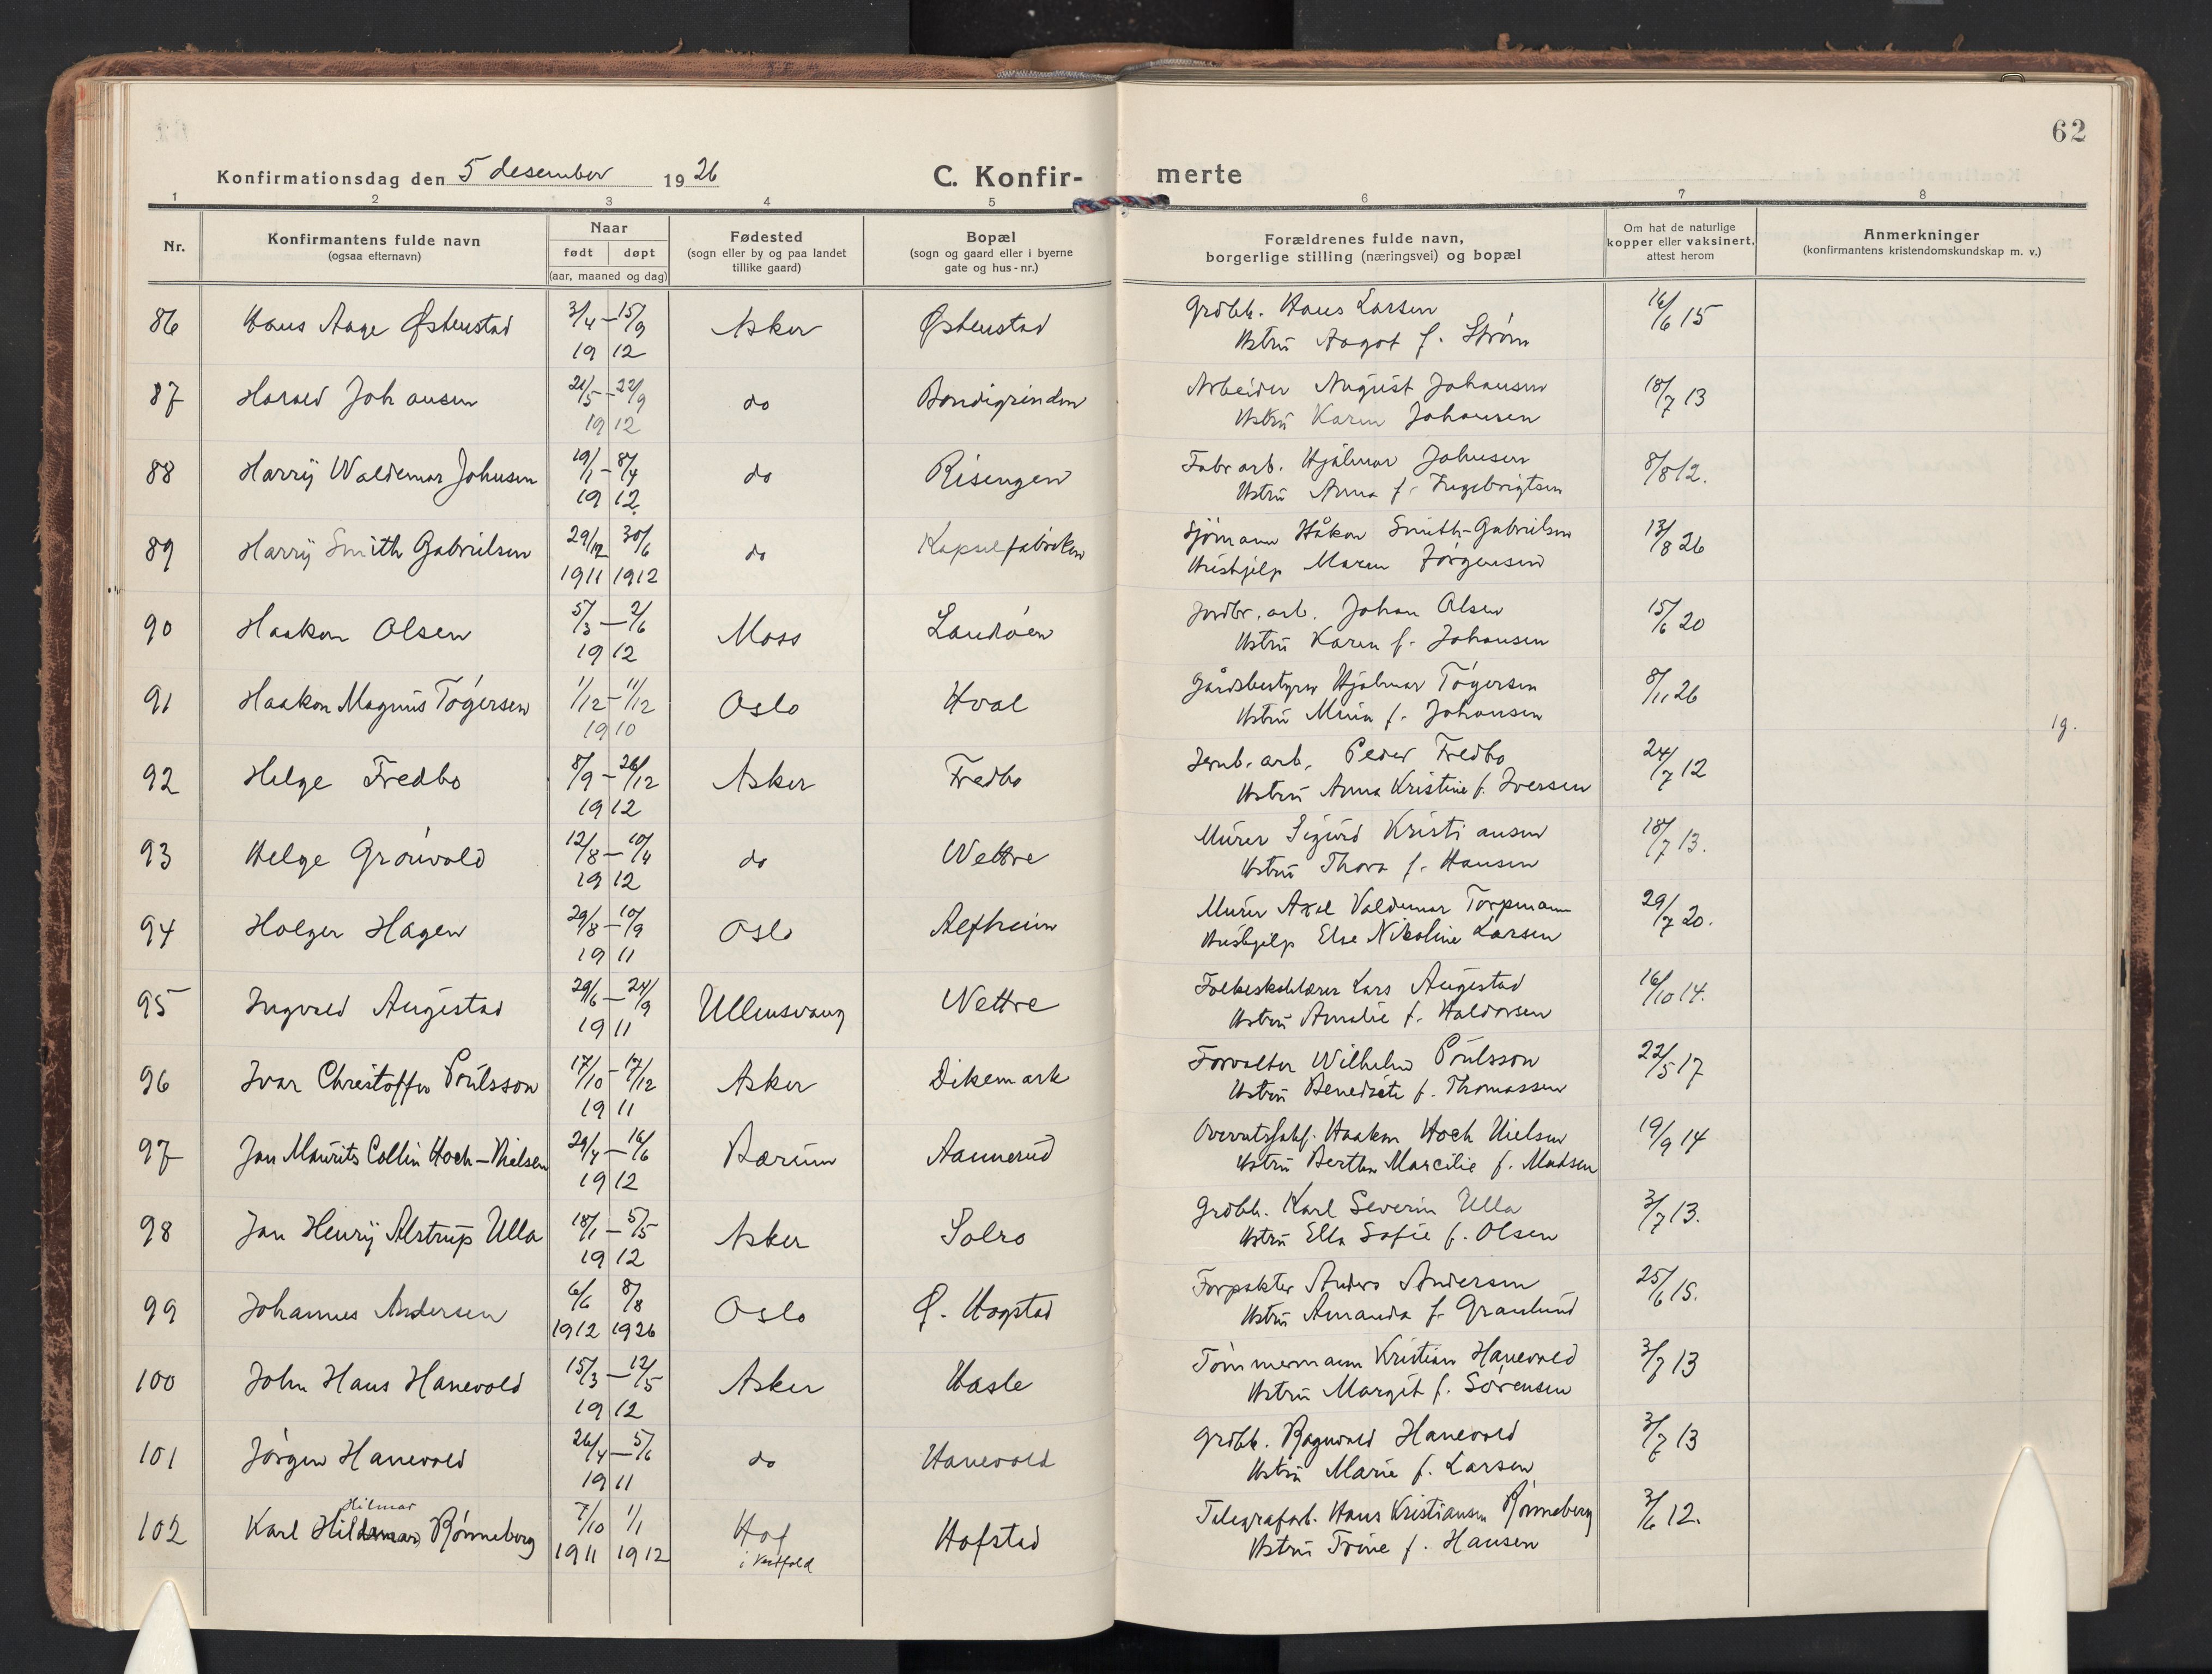 62
Konfirmationsdag den 5 desember 1926 C. Konfir- merte
1 2 3 4 5 6 7 8
Nr. Konfirmantens fulde navn (ogsaa efternavn) Naar født døpt (aar, maaned og dag) Fødested (sogn eller by og paa landet tillike gaard) Bopæl (sogn og gaard eller i byerne gate og hus-nr.) Forældrenes fulde navn, borgerlige stilling (næringsvei) og bopæl Om hat de naturlige kopper eller vaksinert, attest herom Anmerkninger (konfirmantens kristendomskundskap m. v.)
86 Hans Aage Østenstad 3/4 — 15/9 1912 Asker Østenstad Grdbh. Hans Larsen 16/6 15
Hstru Aagot f. Strøm
87 Harald Johansen 21/5 — 22/9 1912 do Bondigrinden Arbeider August Johansen 18/7 13
Hstru Karen Johansen
88 Harry Waldemar Johnsen 19/1 — 8/4 1912. do Risengen Fabr arb. Hjalmar Johnsen 8/8 12.
Hstru Anna f. Ingebrigtsen
89 Harry Smith Gabrielsen 29/12 1911 30/6 1912 do Kapselfabriken Sjömann Håkon Smith-Gabrielsen 13/8 26
Hushjelp Maren Jörgensen
90 Haakon Olsen 5/3 — 2/6 1912 Moss Landöen Jordbr. arb. Johan Olsen 15/6 20
Hstru Karen f. Johansen
91 Haakon Magnus Tögersen 1/12 — 11/12 1910 Oslo Hval Gårdsbestyrer Hjalmar Tögersen 8/11 26
Hstru Mina f. Johansen 19.
92 Helge Fredbo 8/9 — 26/12 1912 Asker Fredbo Jernb. arb. Peder Fredbo 24/7 12
Hstru Anna Kristine f. Iversen
93 Helge Grönvold 12/8 — 10/4 1912 do Wettre Murer Sigurd Kristiansen 18/7 13.
Hstru Thora f. Hansen
94 Holger Hagen 29/8 — 10/9 1911 Oslo Alfheim Murer Axel Valdemar Torpmann 29/7 20.
Hushjelp Else Nikoline Larsen
95 Ingvald Augestad 29/6 — 24/9 1911 Ullensvang Wettre Folkeskolelærer Lars Augestad 16/10 14.
Hstru Amalie f. Haldorsen
96 Ivar Christoffer Poulsson 17/10 — 17/12 1911 Asker Dikemark Forvalter Wilhelm Poulsson 22/5 17
Hstru Benedicte f. Thomassen
97 Jan Maurits Collin Hoch-Nielsen 29/4 — 16/6 1912 Bærum Aannerud Overretssakf. Haakon Hoch Nielsen 19/9 14
Hstru Berthe Marcilie f. Madsen
98 Jan Henry Alstrup Ulla 18/1 — 5/5 1912 Asker Solro Grdbh. Karl Severin Ulla 3/7 13.
Hstru Ella Sofie f. Olsen
99 Johannes Andersen 6/6 1912 8/8 1926 Oslo Ø. Hogstad Forpakter Anders Andersen 25/6 15.
Hstru Amanda f. Granlund
100 John Hans Hanevold 15/3 — 12/5 1912 Asker Hasle Tömmermann Kristian Hanevold 3/7 13
Hstru Margit f. Sörensen
101 Jörgen Hanevold 26/4 — 5/6 1911 do Hanevold Grdbh. Ragnvald Hanevold 3/7 13
Hstru Marie f. Larsen
Hilmar
102 Karl Hildemar Rönneberg 7/10 1911 1/1 1912 Hof i Vestfold Hofstad Telegrafarb. Hans Kristiansen Rönneberg 3/6 12.
Hstru Trine f. Hansen